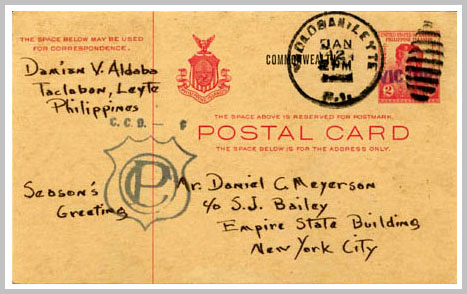 THE SPACE BELOW MAY BE USED
FOR CORRESPONDENCE.
Damian V. Aldaba
Tacloban, Leyte
Philippines
C.C.D. - F
Season's
Greeting
CP
COMMONWEALTH
LEYTE
JAN
12
PM
P.I.
UNITED STATES
VICTORY
2
THE SPACE ABOVE IS RESERVED FOR POSTMARK.
POSTAL CARD
THE SPACE BELOW IS FOR THE ADDRESS ONLY.
Mr. Daniel C. Meyerson
c/o S.J. Bailey
Empire State Building
New York City